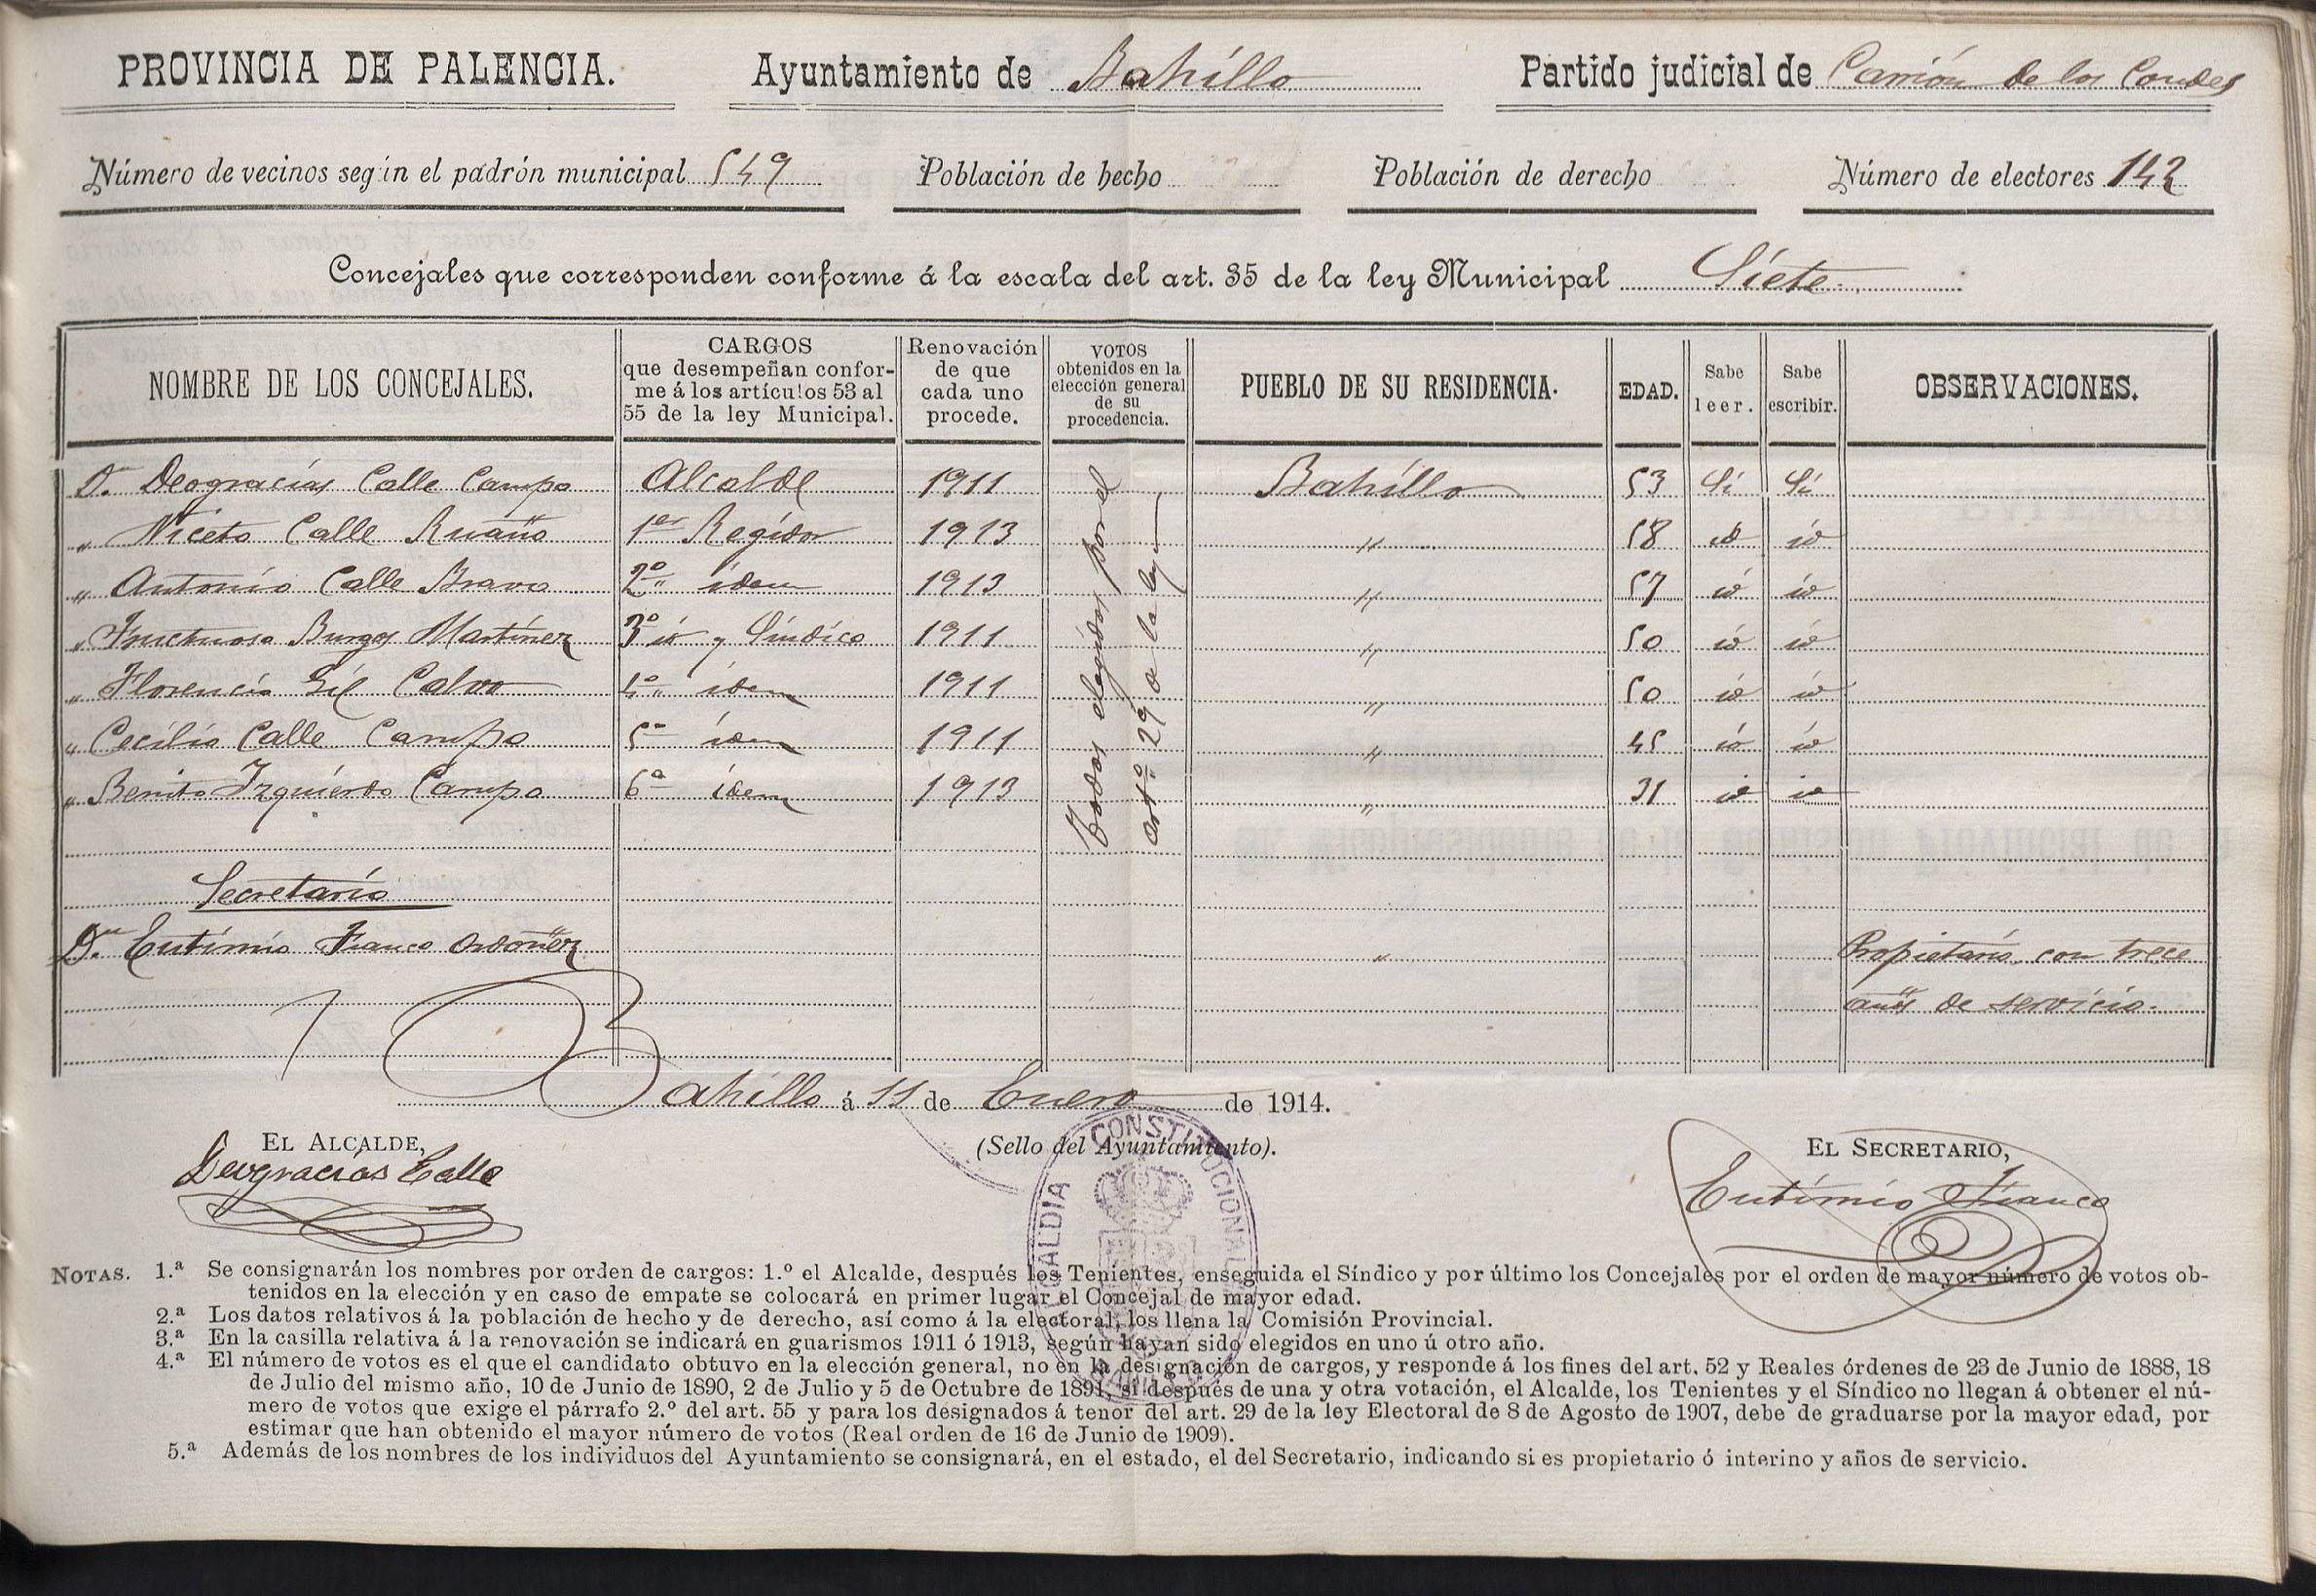 PROVINCIA DE PALENCIA. Ayuntamiento de Bahillo Partido judicial de Carrión de los Condes
Número de vecinos según el padrón municipal 549 Población de hecho Población de derecho Número de electores 142
Concejales que corresponden conforme á la escala del art. 35 de la ley Municipal Siete.
NOMBRE DE LOS CONCEJALES. CARGOS que desempeñan conforme á los artículos 53 al 55 de la ley Municipal. Renovación de que cada uno procede. VOTOS obtenidos en la elección general de su procedencia. PUEBLO DE SU RESIDENCIA. EDAD. Sabe leer. Sabe escribir. OBSERVACIONES.
Dn. Deogracias Calle Campo Alcalde 1911 Bahillo 53 Sí Sí
" Niceto Calle Ruaño 1er Regidor 1913 " 58 id id
" Antonio Calle Bravo 2º idem 1913 " 57 id id
" Fructuoso Burgos Martínez 3º id y Síndico 1911 " 50 id id
" Florencio Gil Calvo 4º idem 1911 " 50 id id
" Cecilio Calle Campo 5º idem 1911 " 45 id id
" Benito Izquierdo Campo 6º idem 1913 " 31 id id
Todos elegidos por el
artº 29 de la ley
Secretario
Dn. Eutimio Franco Ordoñez " Propietario con trece
años de servicio.
Bahillo á 11 de Enero de 1914.
EL ALCALDE, (Sello del Ayuntamiento). EL SECRETARIO,
Deogracias Calle Eutimio Franco
ALCALDIA CONSTITUCIONAL
NOTAS. 1.ª Se consignarán los nombres por orden de cargos: 1.º el Alcalde, después los Tenientes, enseguida el Síndico y por último los Concejales por el orden de mayor número de votos ob-
tenidos en la elección y en caso de empate se colocará en primer lugar el Concejal de mayor edad.
2.ª Los datos relativos á la población de hecho y de derecho, así como á la electoral, los llena la Comisión Provincial.
3.ª En la casilla relativa á la renovación se indicará en guarismos 1911 ó 1913, según hayan sido elegidos en uno ú otro año.
4.ª El número de votos es el que el candidato obtuvo en la elección general, no en la designación de cargos, y responde á los fines del art. 52 y Reales órdenes de 23 de Junio de 1888, 18
de Julio del mismo año, 10 de Junio de 1890, 2 de Julio y 5 de Octubre de 1891, si después de una y otra votación, el Alcalde, los Tenientes y el Síndico no llegan á obtener el nú-
mero de votos que exige el párrafo 2.º del art. 55 y para los designados á tenor del art. 29 de la ley Electoral de 8 de Agosto de 1907, debe de graduarse por la mayor edad, por
estimar que han obtenido el mayor número de votos (Real orden de 16 de Junio de 1909).
5.ª Además de los nombres de los individuos del Ayuntamiento se consignará, en el estado, el del Secretario, indicando si es propietario ó interino y años de servicio.